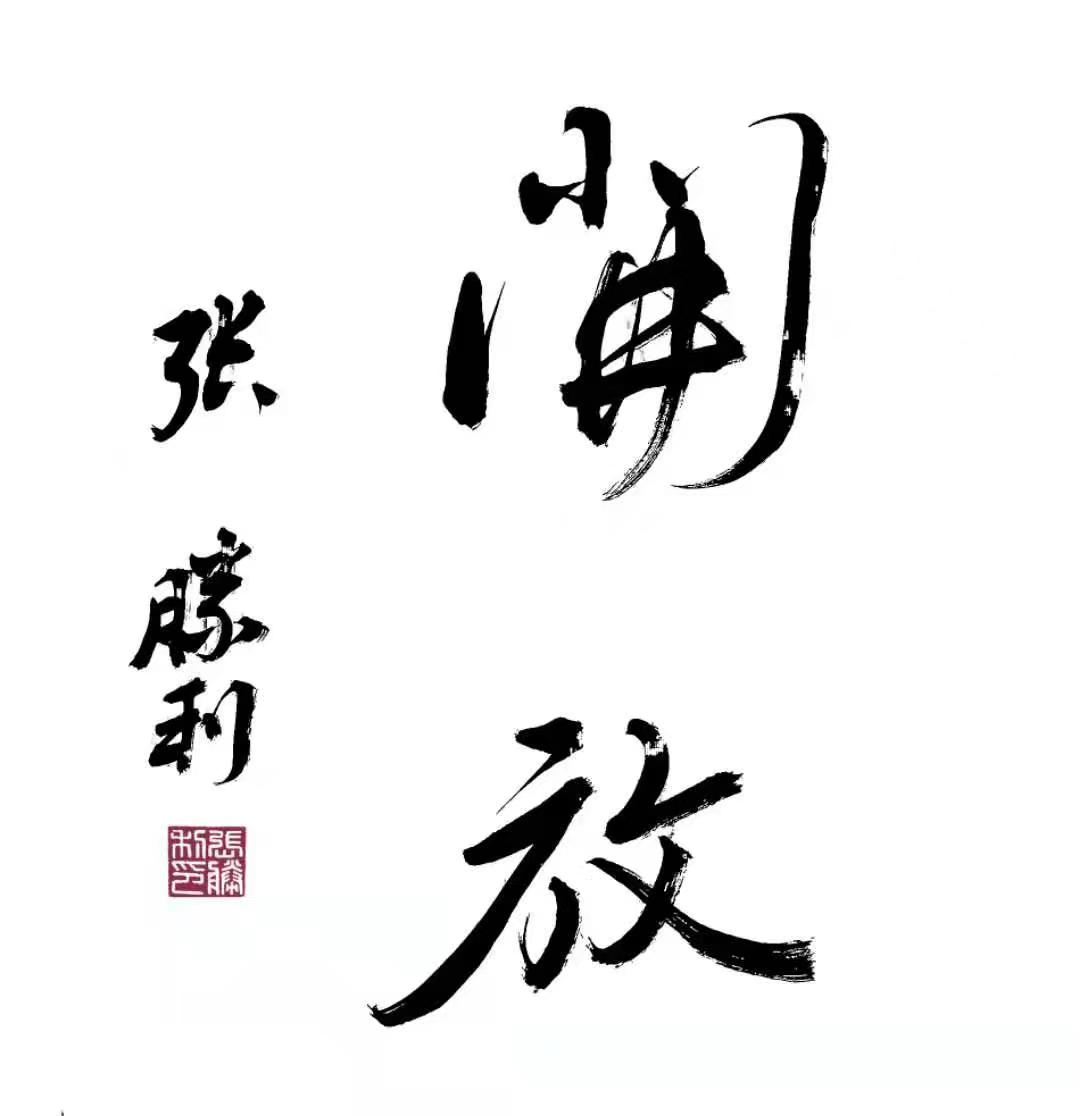 開放
张勝利
張勝利印